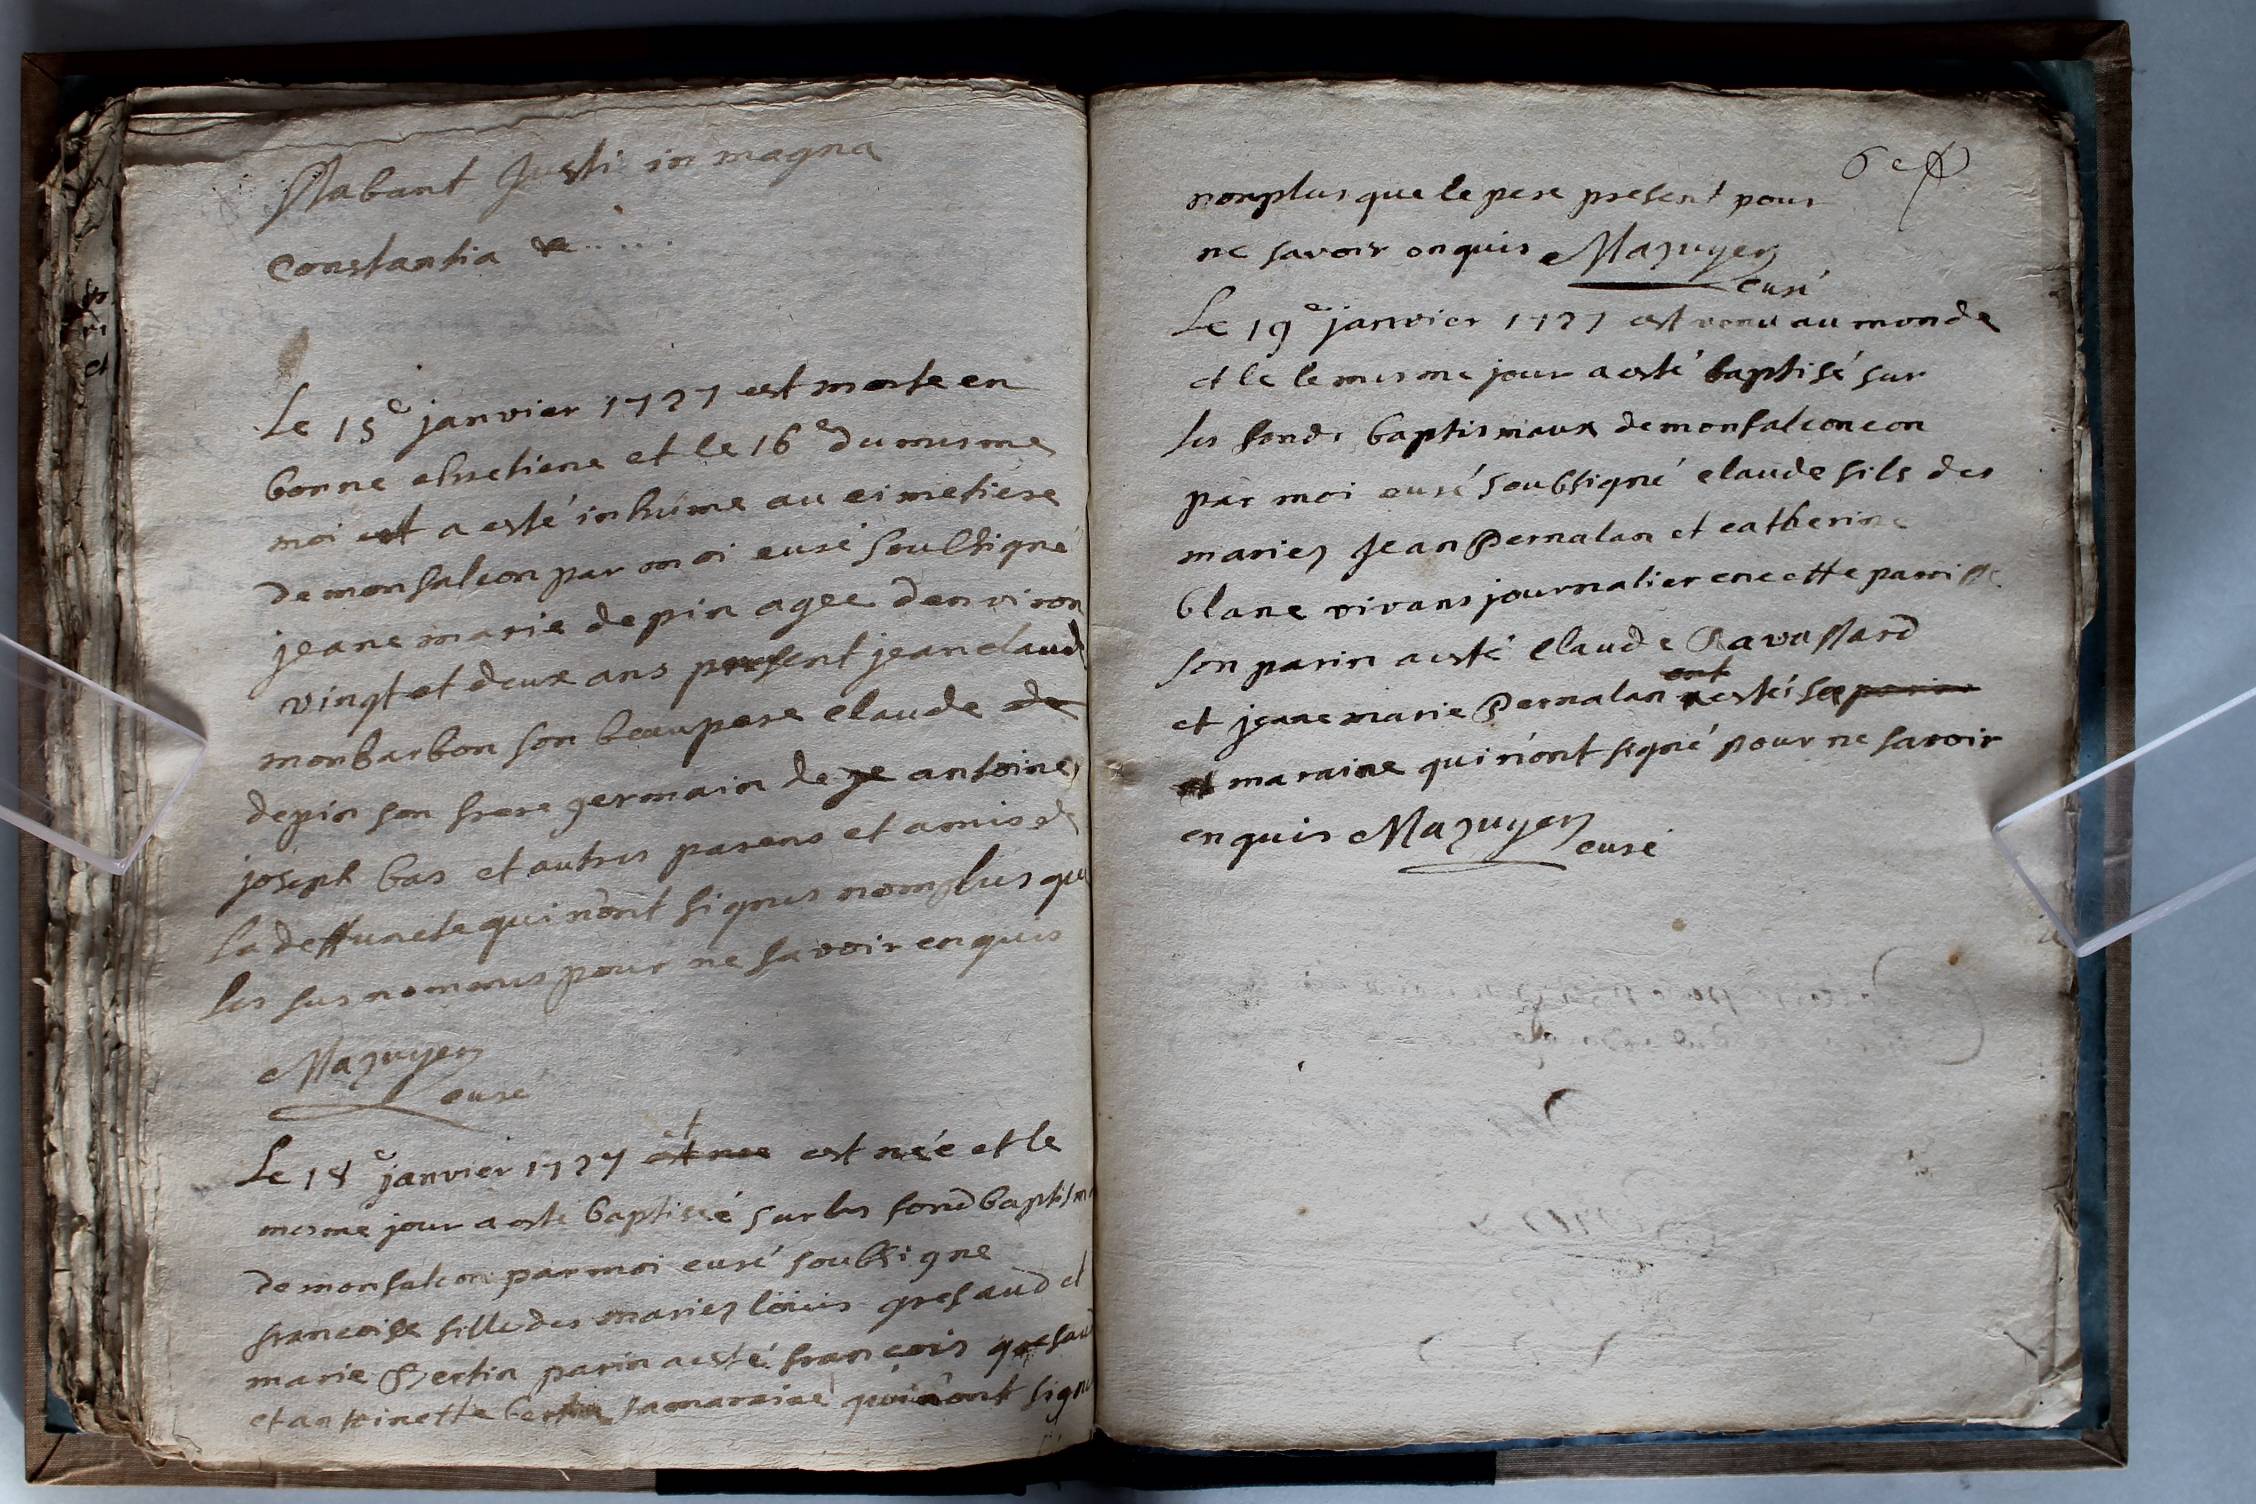 Stabant Justi in magna
Constantia
Le 15e janvier 1727 est morte en
bonne chretiene et le 16e du mesme
moi est a esté inhúme au cimetiere
de monfalcon par moi curé soubsigné
jeane marie depin agee denviron
vingt et deux ans present jean claud
monbarbon son beaupere claude de
depin son frere germain de je antoine
joseph bas et autres parens et amis de
la deffuncte qui n'ont signes nomplus que
les sus nommes pour ne savoir enquis
Mazuyer
curé
Le 18e janvier 1727 est née est née et le
mesme jour a esté baptiseé sur les fond baptism
de monfalcon par moi curé soubsigne
francoise fille des mariez loüis gresaud et
marie Pertin parin a esté françois gresaud
et antoinette bertin sa maraine qui n'ont signe
6e
nonplus que le pere present pour
ne savoir onquis Mazuyer
curé
Le 19e janvier 1727 est venu au monde
et le le mesme jour a esté baptisé sur
les fonds baptismaux de monfalconcon
par moi curé soubsigné claude fils des
mariez Jean Pernalan et catherine
blanc vivans journalier en cette parrisse
son parin a esté Claude Ravassard
ont
et jeane marie Pernalan a estéi sa parine
et maraine qui n'ont signé pour ne savoir
enquis Mazuyer
curé